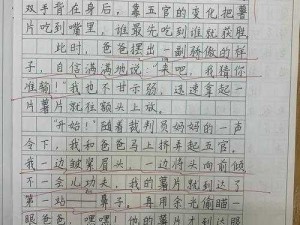 双手背在身后，靠五官的变化把薯
片吃到嘴里，谁最先吃到谁就获胜
此时，爸爸摆出一副骄傲的样
子，自信满满地说：“来吧，我猜你
准输！”我也不甘示弱，迅速拿起一
薯片就往额头上放。
“开始！”随着裁判员妈妈的一声
令下，我和爸爸马上拼弄起五官。
我一边皱紧眉头，一边将头向前倾
不一会儿功夫，我的薯片就到达了
第一站——鼻子。再用余光偷瞄一
眼爸爸，嘿嘿！他的薯片才到达眼